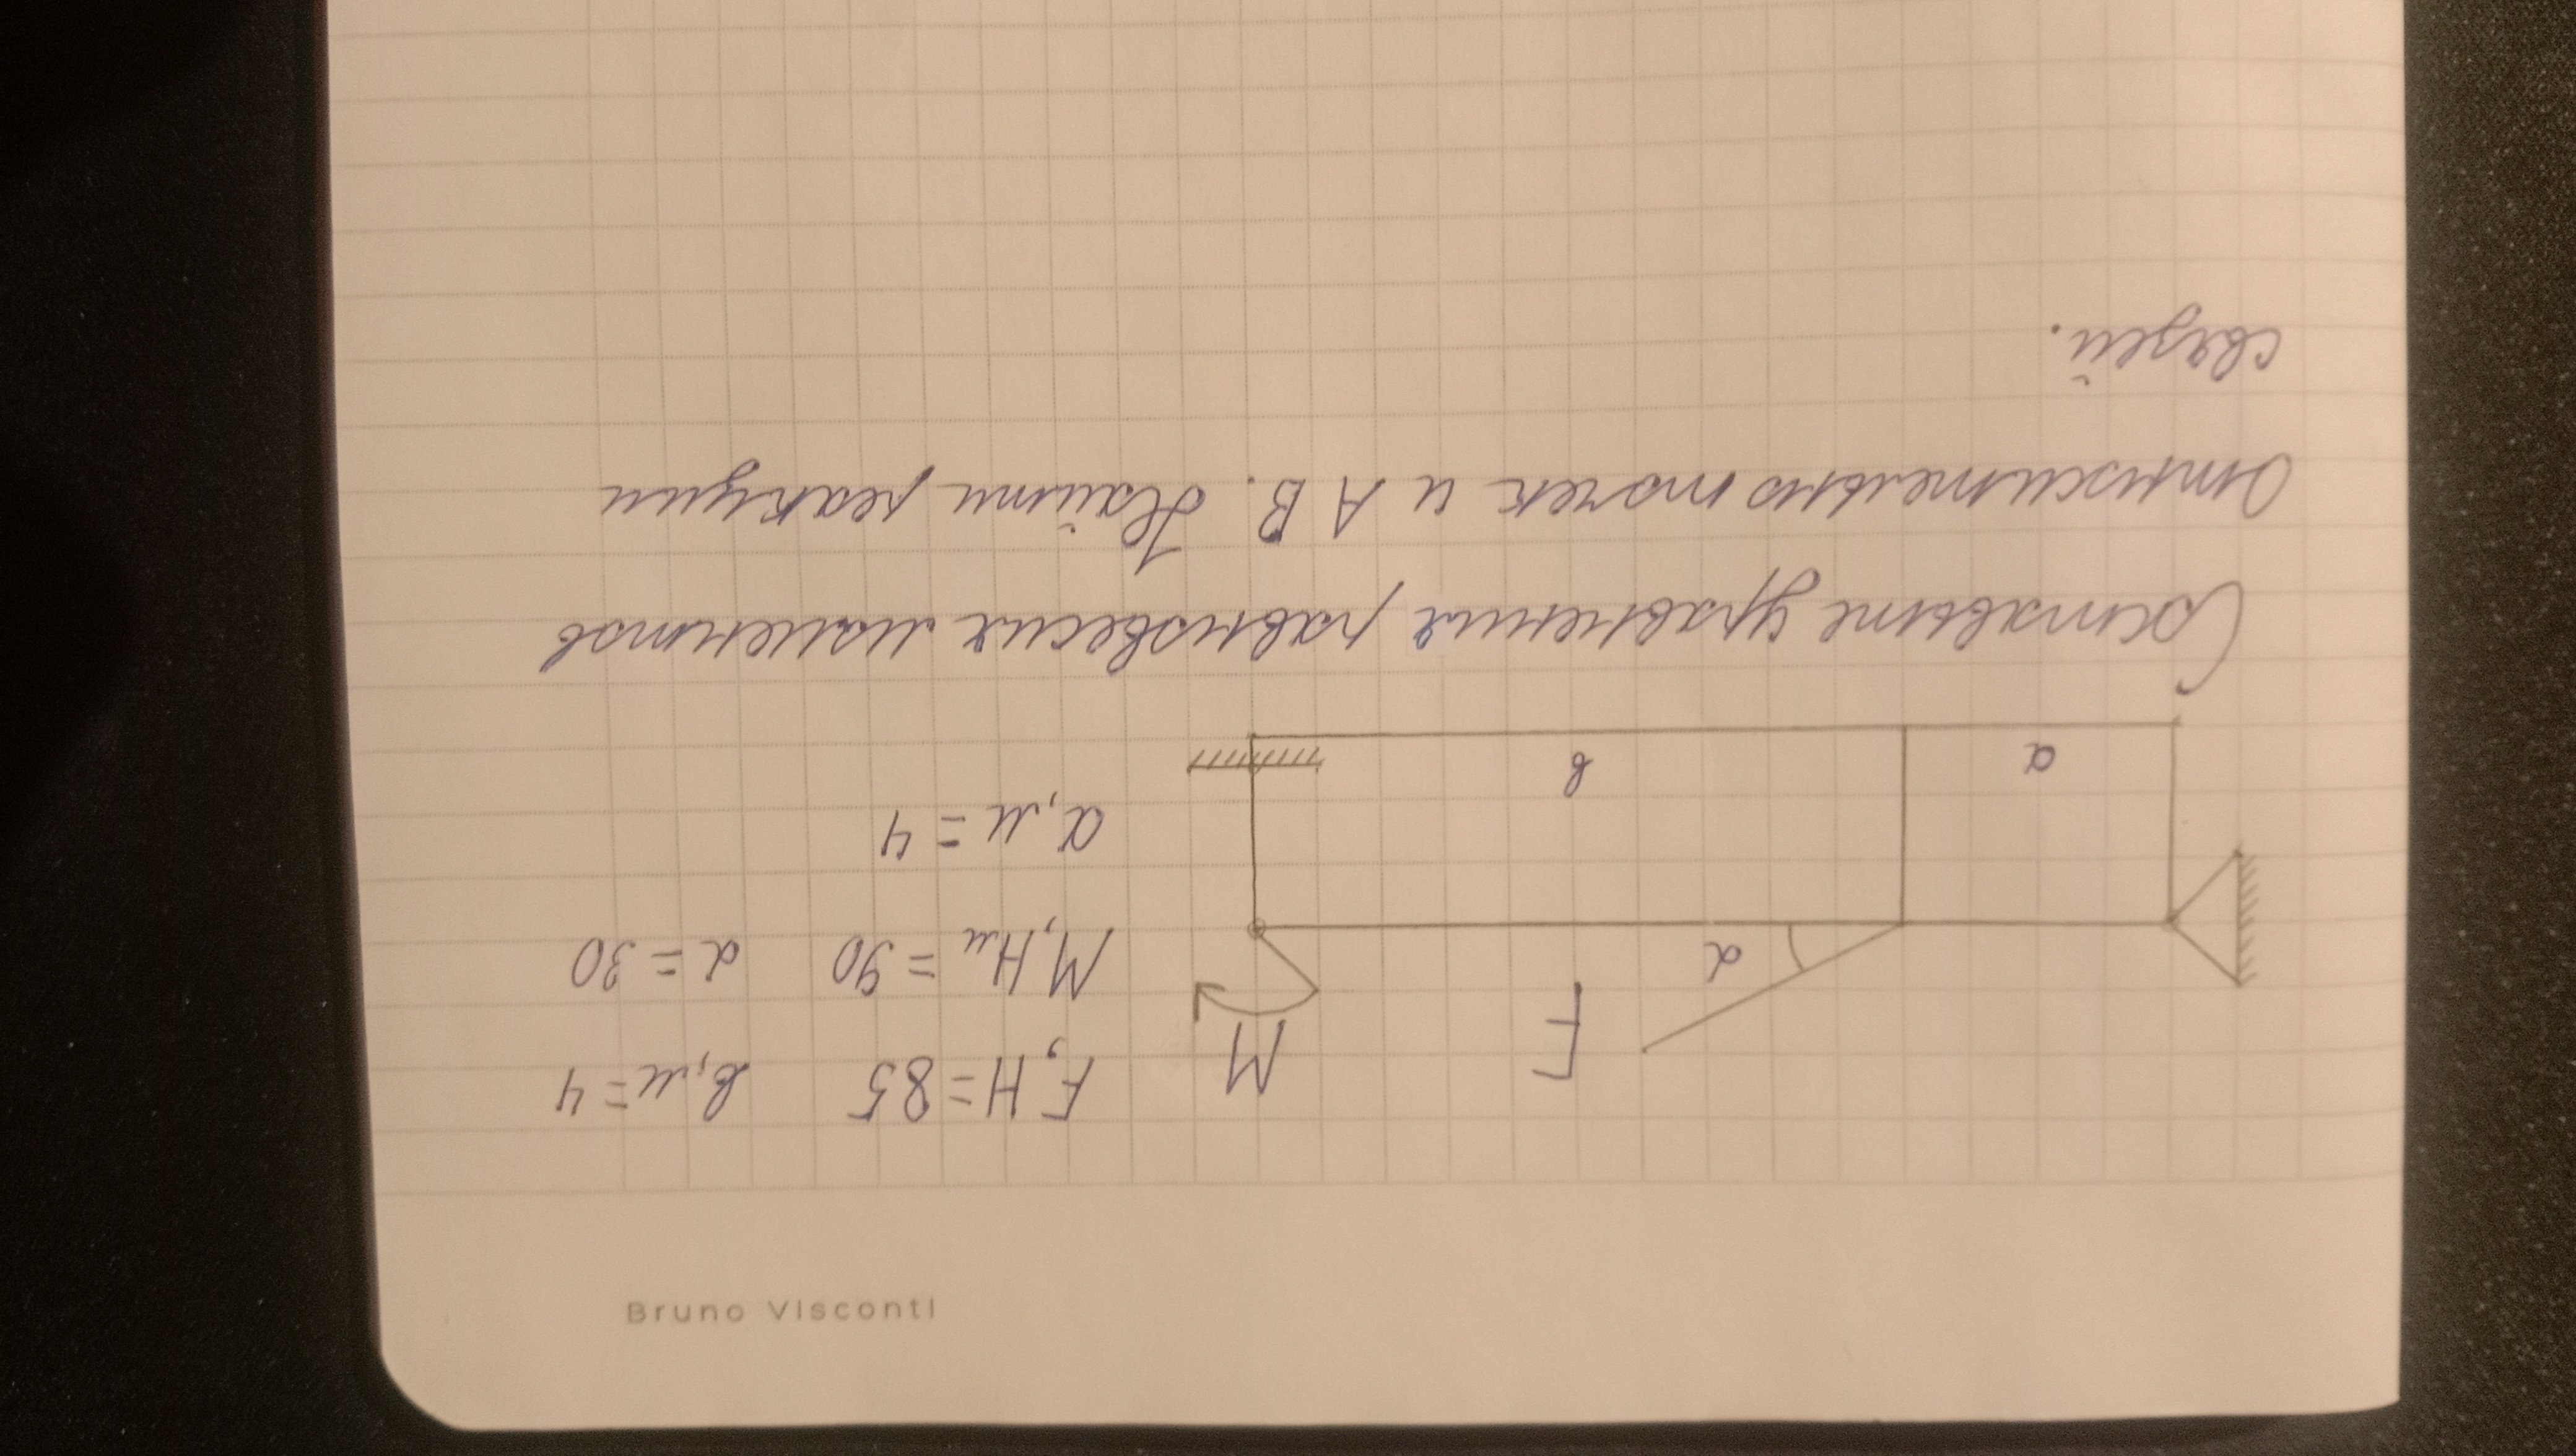 F, H = 85 в, м = 4
M, Нм = 90 α = 30
а, м = 4
F
M
α
а
в
Составьте уравнение равновесия моментов
Относительно точек и А В. Найти реакции
связей.
Bruno Visconti